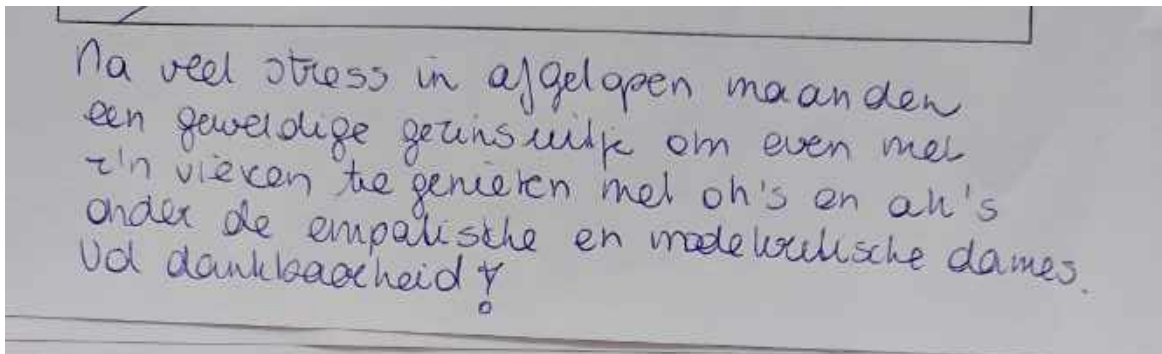 Na veel stress in afgelopen maanden
een geweldige gezinsuitje om even met
z'n vieren te genieten met oh's en ah's
onder de empatische en modekritische dames.
Vol dankbaarheid!